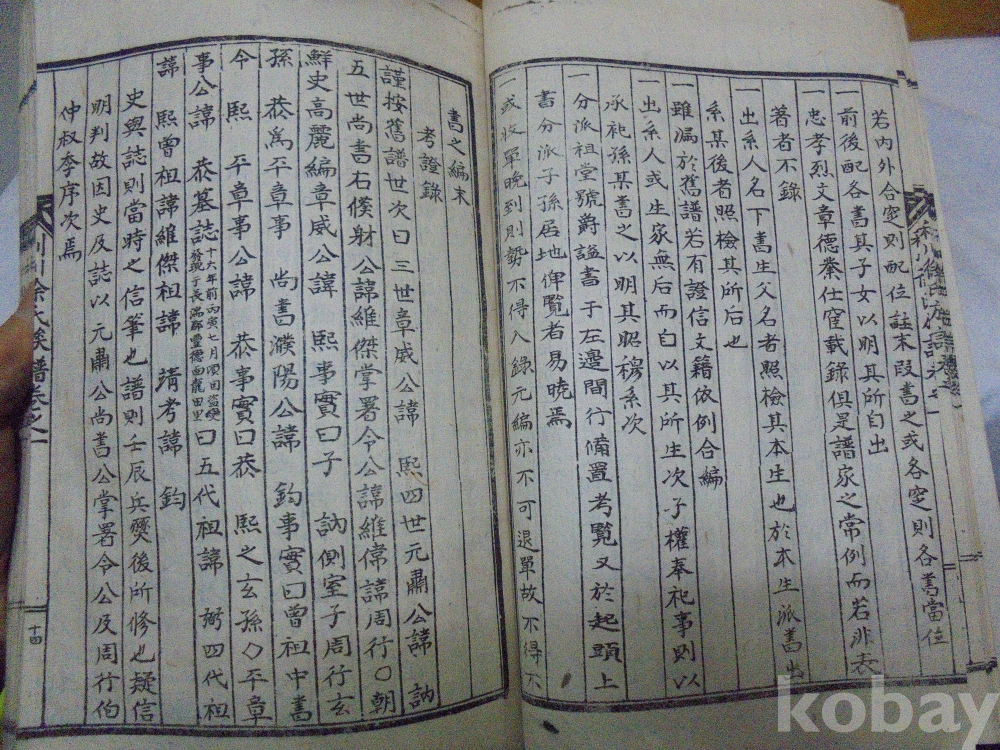 若內外合窆則配位註末段書之或各窆則各書當位
一前後配各書其子女以明其所自出
一忠孝烈文章德業仕宦載錄俱是譜家之常例而若非表
著者不錄
一出系人名下書生父名者照檢其本生也於本生派書出
系某後者照檢其所后也
一雖漏於舊譜若有證信文籍依例合編
一出系人或生家無后而自以其所生次子權奉祀事則以
承祀孫某書之以明其昭穆系次
一分派祖堂號爵諡書于左邊間行備置考覽又於起頭上
書分派子孫居地俾覽者易曉焉
一或收單晚到則勢不得入錄元編亦不可退單故不得不
書之編末
考證錄
謹按舊譜世次曰三世章威公諱 熙四世元肅公諱 訥
五世尚書右僕射公諱維傑掌署令公諱維偉諱周行○朝
鮮史高麗編章威公諱 熙事實曰子 訥側室子周行玄
孫 恭爲平章事 尚書濮陽公諱 鈞事實曰曾祖中書
令熙 平章事公諱 恭事實曰恭 熙之玄孫○平章
事公諱 恭墓誌十六年前丙寅七月頃因盜變發現于長湍郡豊德面龍田里曰五代祖諱 弼四代祖
諱 熙曾祖諱維傑祖諱 靖考諱 鈞
史與誌則當時之信筆也譜則壬辰兵燹後所修也疑信
明判故因史及誌以元肅公尚書公掌署令公及周行伯
仲叔季序次焉
徐氏族譜卷之一
十四
kobay